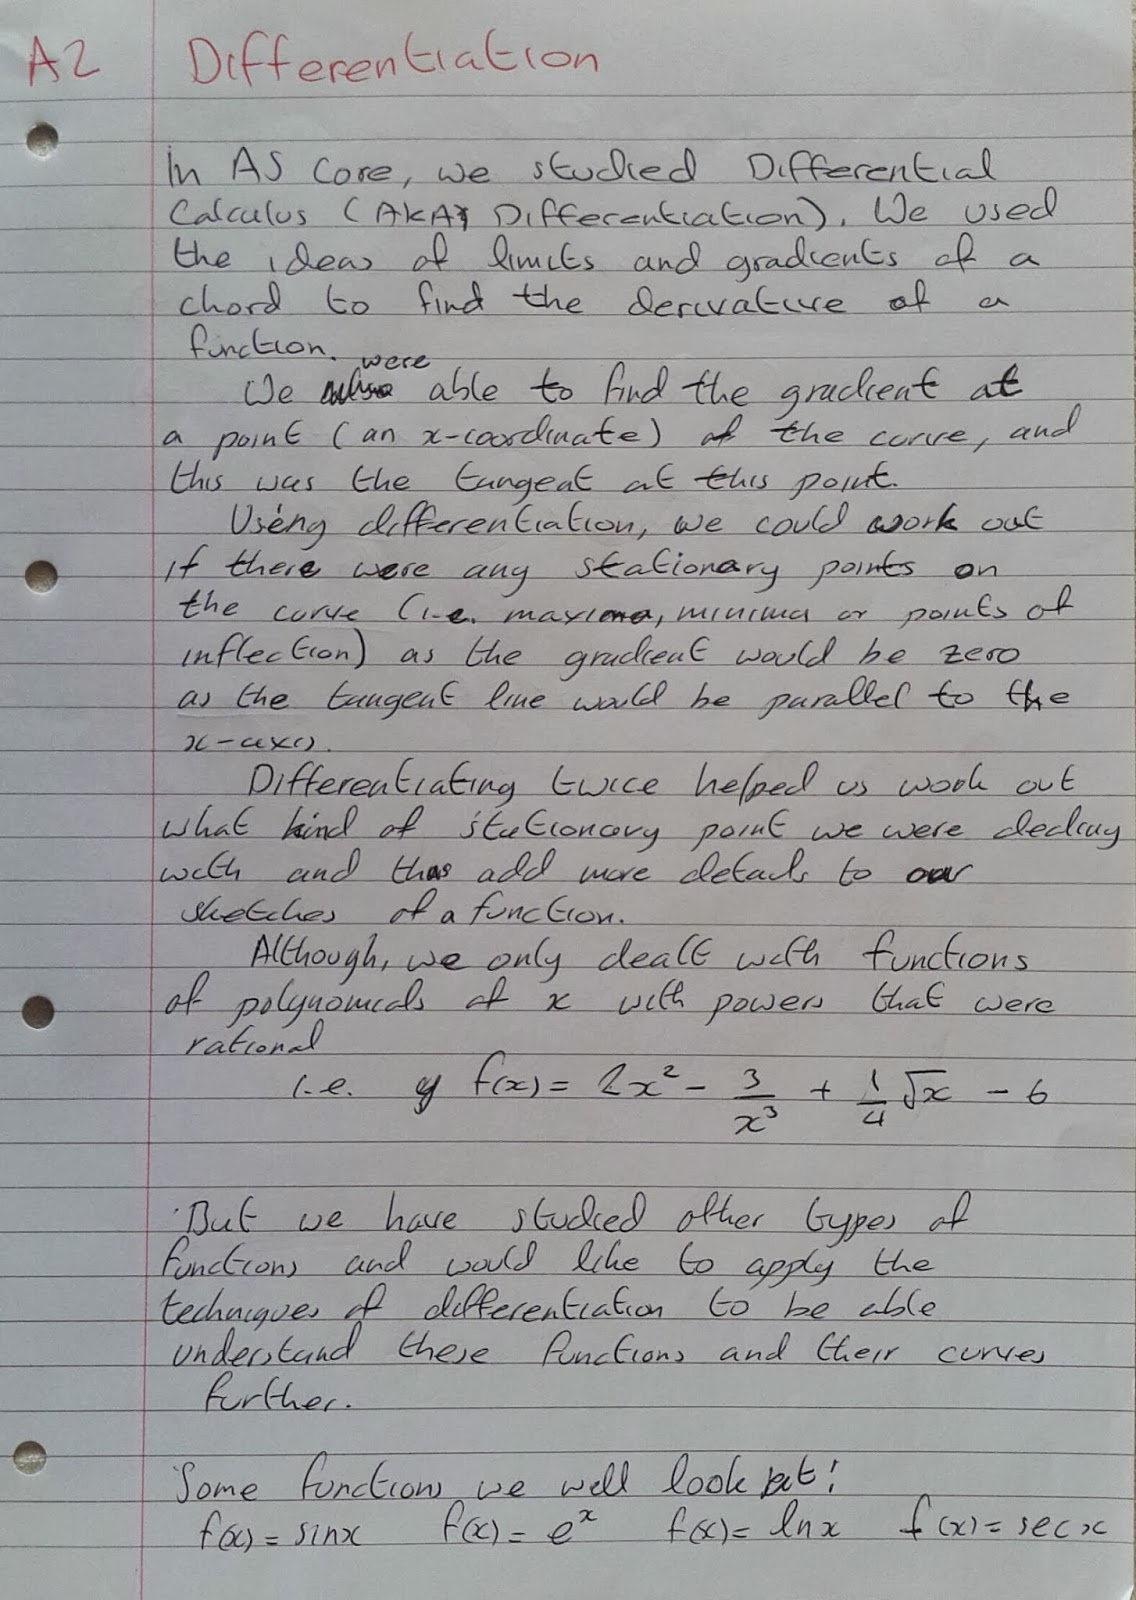 A2 Differentiation
In AS Core, we studied Differential
Calculus (AKA Differentiation). We used
the ideas of limits and gradients of a
chord to find the derivative of a
function.
We were able to find the gradient at
a point (an x-coordinate) of the curve, and
this was the tangent at this point.
Using differentiation, we could work out
if there were any stationary points on
the curve (i.e. maxima, minima or points of
inflection) as the gradient would be zero
as the tangent line would be parallel to the
x-axis.
Differentiating twice helped us work out
what kind of stationary point we were dealing
with and thus add more details to our
sketches of a function.
Although, we only dealt with functions
of polynomials of x with powers that were
rational
i.e. f(x) = 2x² - 3/x³ + 1/4 √x - 6
But we have studied other types of
functions and would like to apply the
techniques of differentiation to be able
understand these functions and their curves
further.
Some functions we will look at:
f(x) = sinx f(x) = eˣ f(x) = lnx f(x) = secx